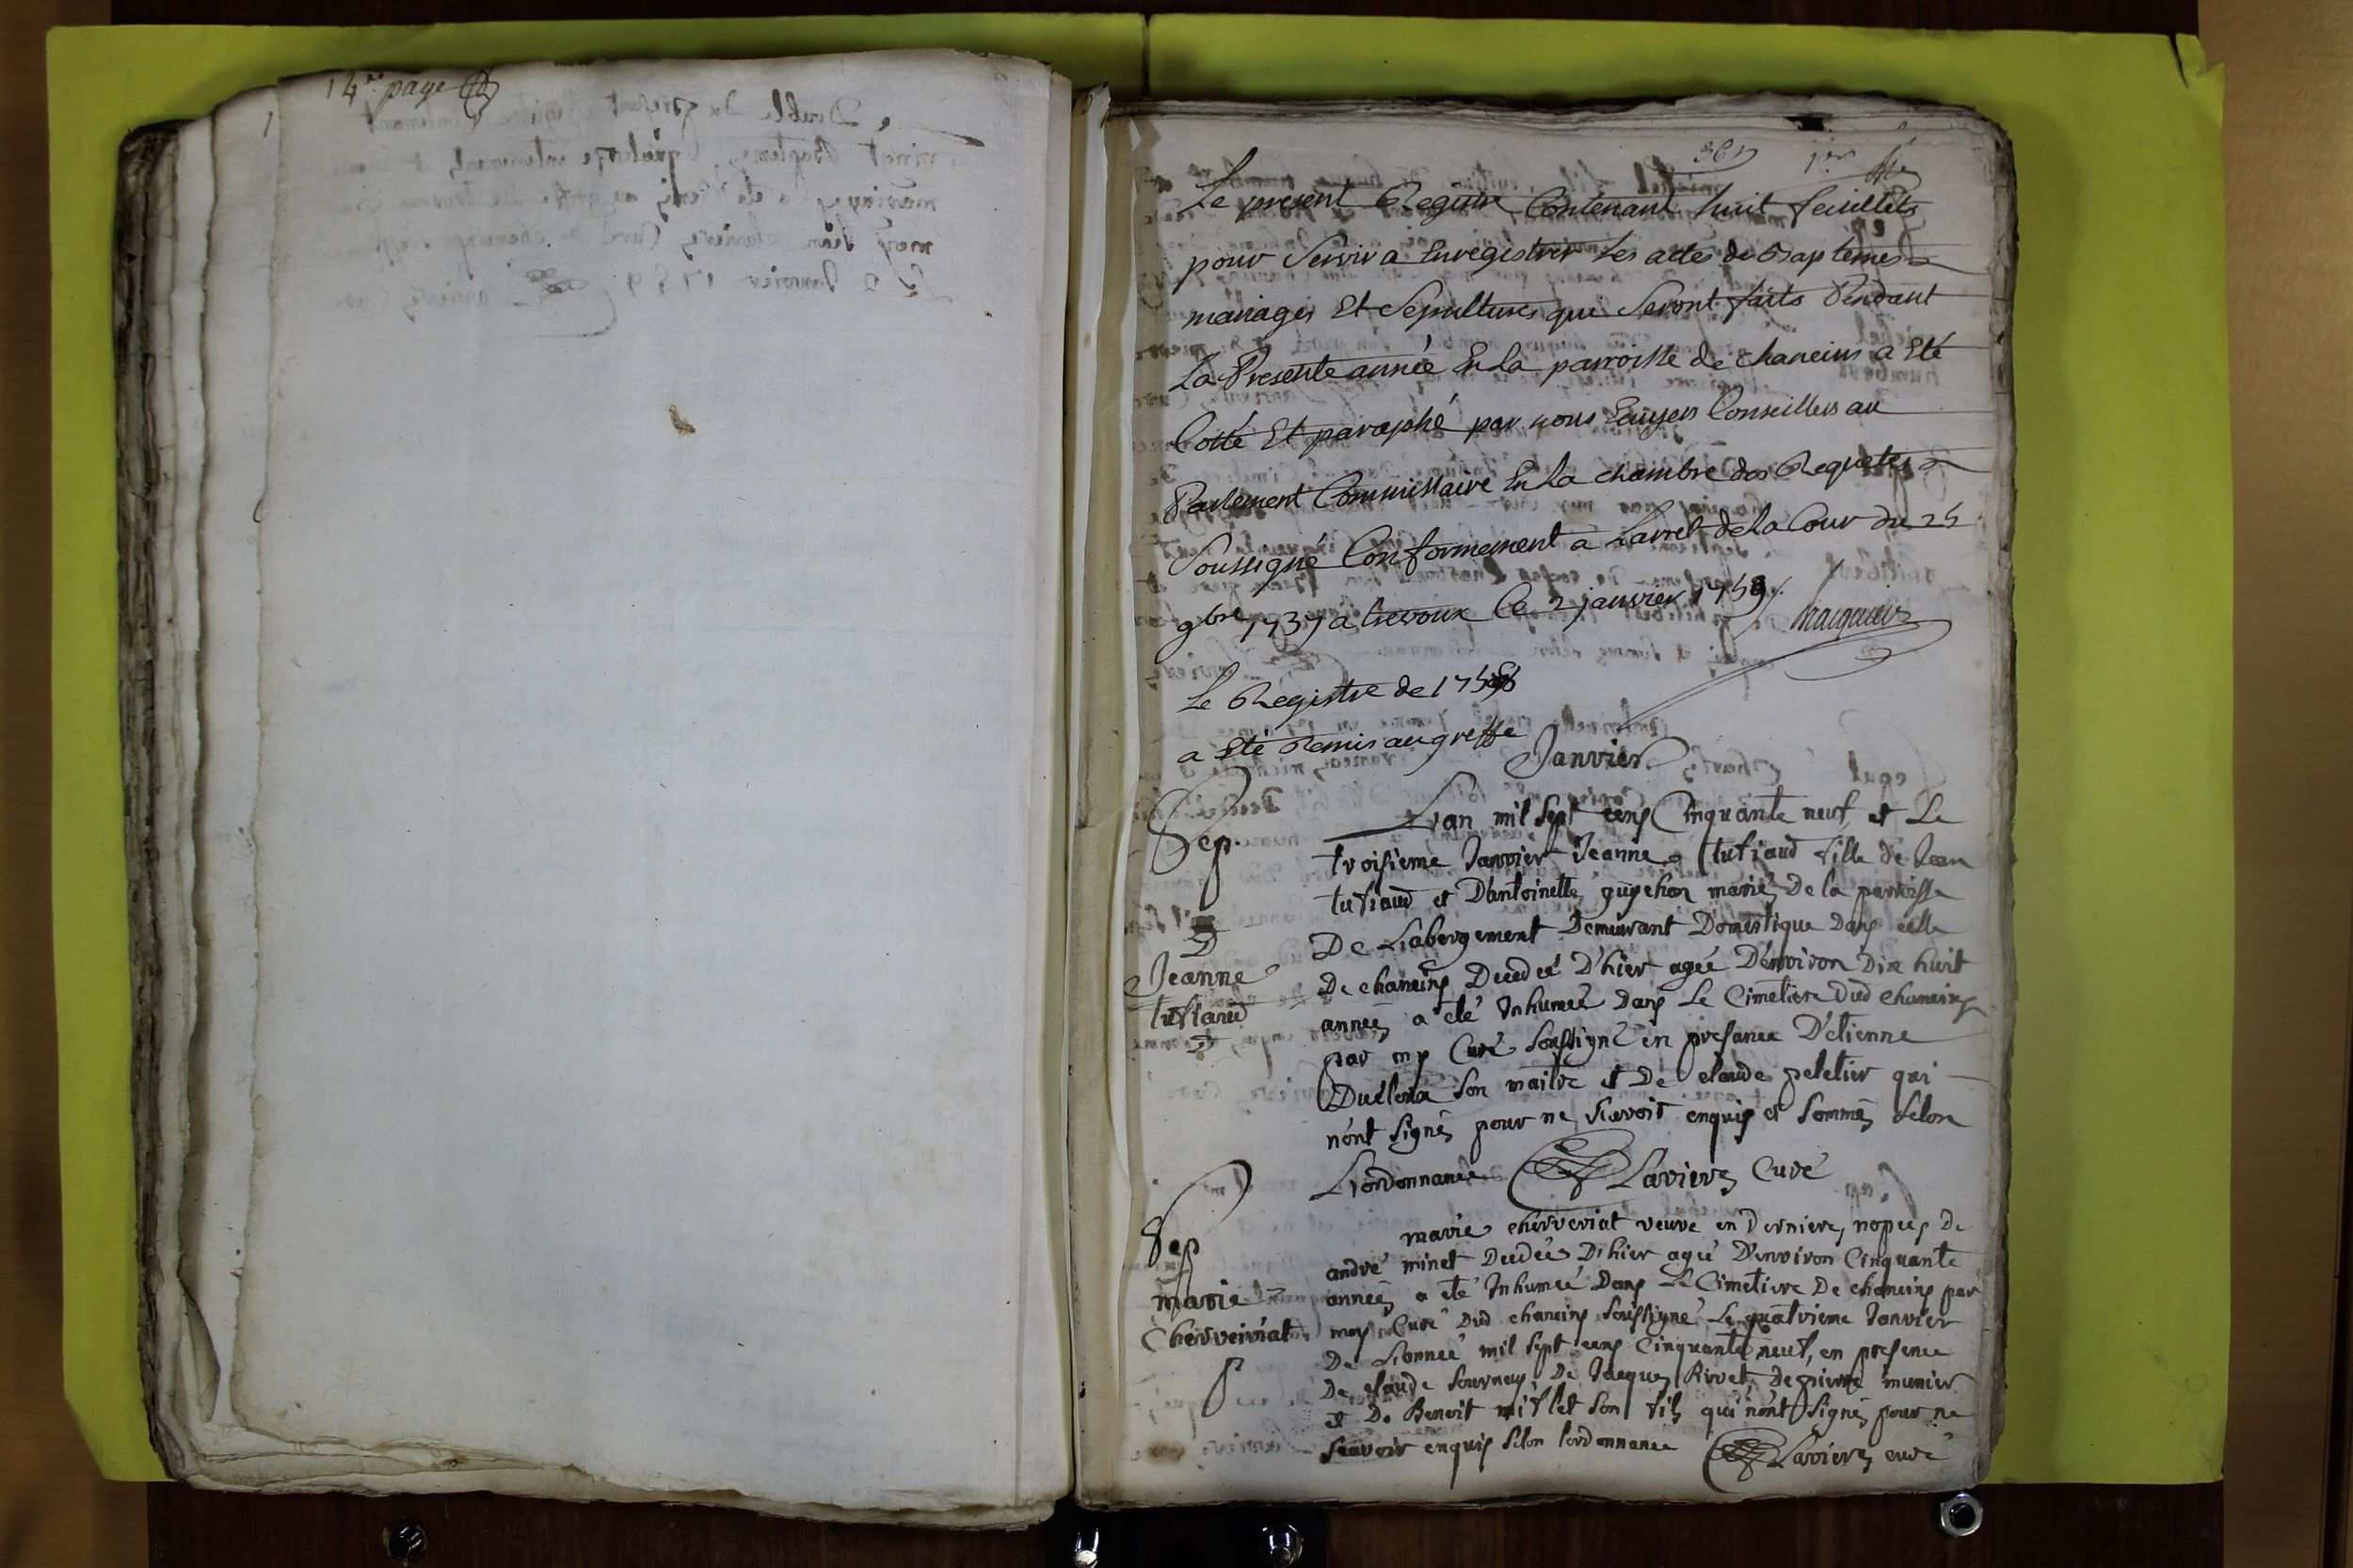 14e. page
1er
Le present Registre Contenant huit feuillets
pour Servir a Enregistrer Les actes de Baptemes
mariages Et Sepultures qui Seront faits Pendant
La Presente année En La parroisse de chaneins a Eté
Cotté Et paraphé par nous Ecuyer Conseiller au
Parlement Commissaire En La chambre des Requetes
Soussigné Conformement a Larret de La Cour du 25
9bre 1737 a trevoux Ce 2 janvier 1759.
Le Registre de 1758
a Eté Remis au greffe
Janvier
Sep.
Jeanne
tufiaud
L'an mil Sept cens Cinquante neuf et Le
troisieme Janvier Jeanne tufiaud fille de Jean
tufiaud et D'antoinette guychon mariés De la parroisse
De L'abergement Demeurant Domestique Dans celle
De chaneins Decedeé D'hier ageé D'environ Dix huit
anneés a eté Inhumeé Dans Le Cimetiere Dud chaneins
par moy Curé Soussigné en presance D'etienne
son maitre et De claude peletier qui
n'ont Signés pour ne Scavoir enquis et Sommés Selon
L'ordonnance Lavieres Curé
Sep
marie
Cherveiriat
marie cherveriat veuve en Dernieres nopces de
andré minet Decedeé D'hier ageé D'environ Cinquante
anneés a eté Inhumeé Dans Le Cimetiere De chaneins par
moy Curé Dud chaneins Soussigné Le quatrieme Janvier
De L'anneé mil Sept cens Cinquante neuf, en presence
De claude De Jacques Rivet, De pierre munier
et De Benoit son fils qui n'ont Signés pour ne
Scavoir enquis Selon l'ordonnance Lavieres curé